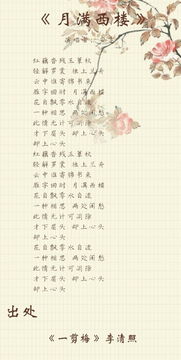 《月满西楼》
演唱者
红藕香残玉簟秋
轻解罗裳 独上兰舟
云中谁寄锦书来
雁字回时 月满西楼
花自飘零水自流
一种相思 两处闲愁
此情无计可消除
才下眉头 却上心头
却上心头
红藕香残玉簟秋
轻解罗裳 独上兰舟
云中谁寄锦书来
雁字回时 月满西楼
花自飘零水自流
一种相思 两处闲愁
此情无计可消除
才下眉头 却上心头
却上心头
花自飘零水自流
一种相思 两处闲愁
此情无计可消除
才下眉头 却上心头
却上心头
出处
《一剪梅》李清照